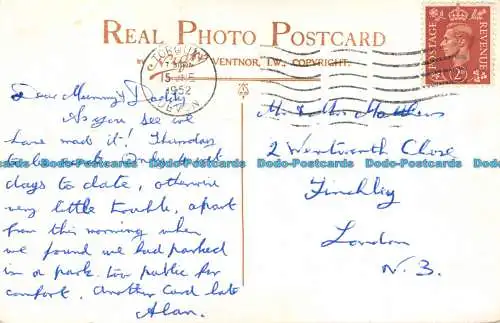 REAL PHOTO POSTCARD
VENTNOR, I.W., COPYRIGHT.
TORQUAY
15 JNE
1952
DEVON
POSTAGE REVENUE
2D
Dear Mummy & Daddy,
As you see we
have made it! Thundery
days to date, otherwise
very little trouble, apart
from this morning when
we found we had parked
in a park too public for
comfort. Another card late
Alan.
Mr & Mrs Matthews
2 Wentworth Close
Finchley
London
N. 3.
Dodo-Postcards Dodo-Postcards Dodo-Postcards Dodo-Postcards Dodo-Postcards